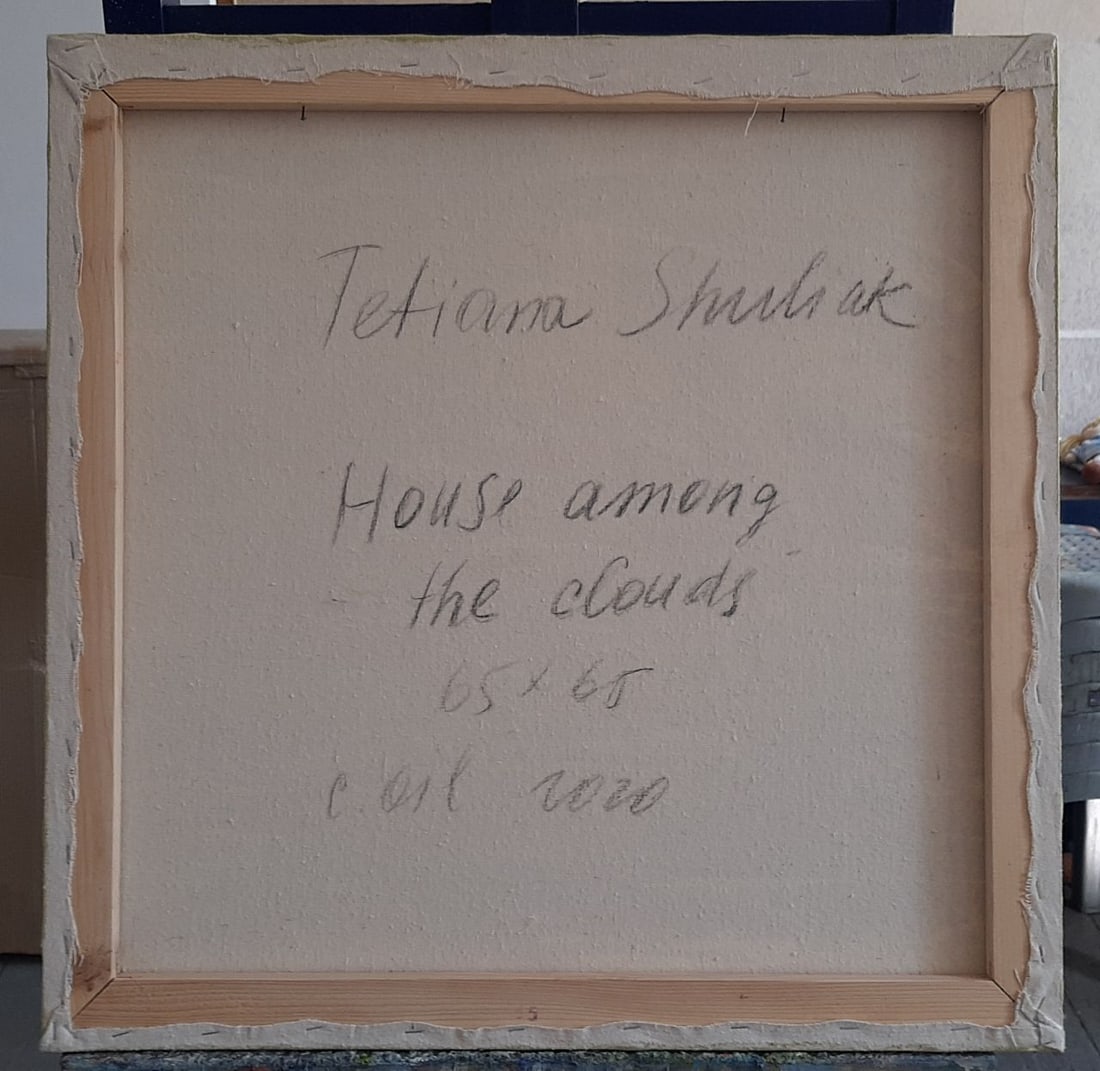 Tetiana Shuliak
House among
the clouds
65 x 65
c oil 2020
5